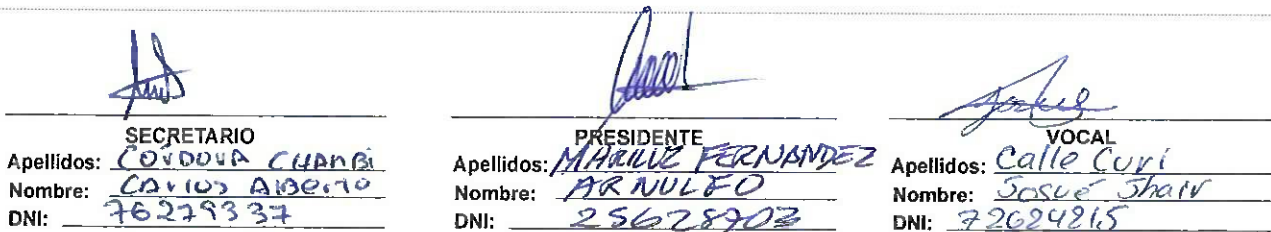 SECRETARIO
Apellidos: COVDOVA CHAMBI
Nombre: CAVlOS AlBeRTO
DNI: 76279337
PRESIDENTE
Apellidos: FERNANDEZ
Nombre: ARNULFO
DNI: 25628903
VOCAL
Apellidos: Calle Curi
Nombre: Josué Jhair
DNI: 72624215